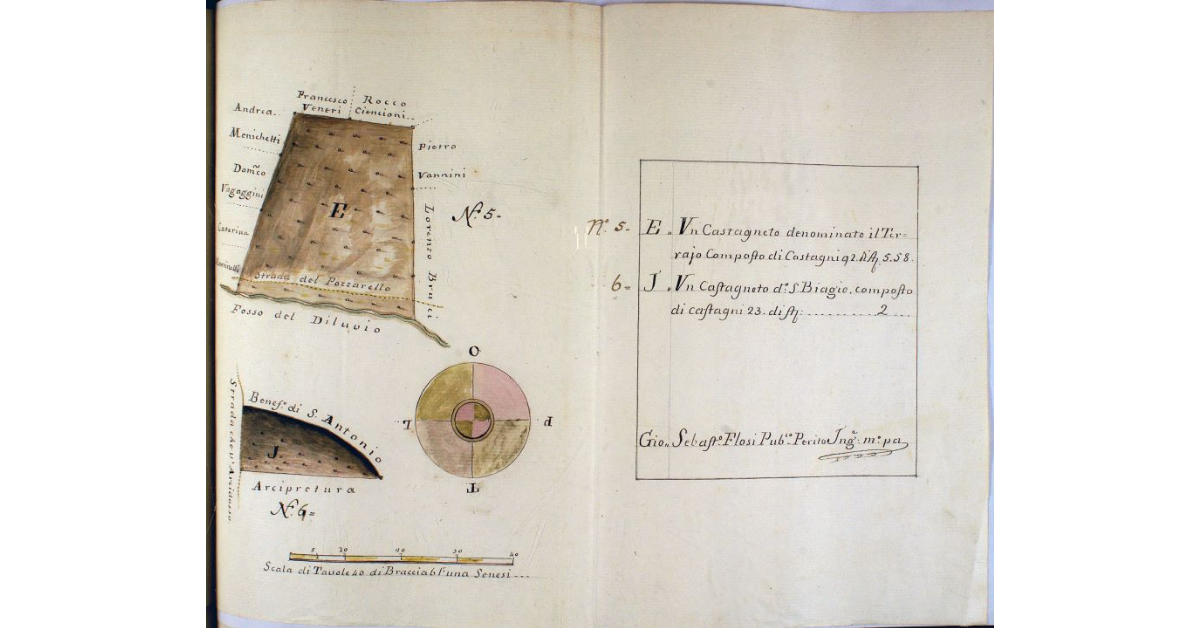 Francesco Rocco
Veneri Ciencioni
Andrea
Menichetti
Dom.co
Vagaggini
Caterina
Pietro
Vannini
E
N.º 5-
Lorenzo Bruci
Strada del Pozzarello
Fosso del Diluvio
O
P
T
L
Strada che
Benef.º di S. Antonio
J
Arcipretura
N.º 6=
5 20 40
Scala di Tavole 40 di Braccia 6 l'una Senesi
N.º 5- E. Vn Castagneto denominato il Ter=
rajo Composto di Castagni 92. di st. 5. 58.
6= J. Vn Castagneto d.º S. Biagio. composto
di castagni 23. di st: .......... 2 ....
Gio. Sebast.º Flosi Pub.co Perito Ing.e m.º pa